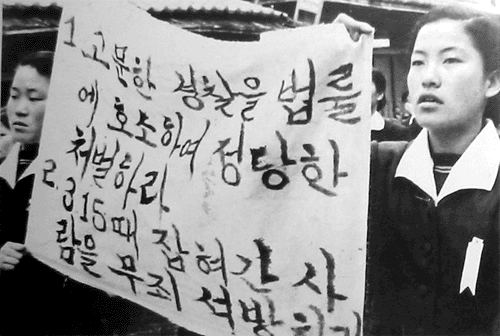 1. 고문한 경찰을 법률
에 호소하며 정당한
처벌하라
2. 315때 잡혀간 사
람을 무죄 석방